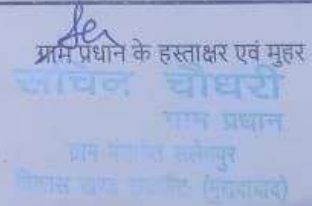 ग्राम प्रधान के हस्ताक्षर एवं मुहर
सचिन चौधरी
ग्राम प्रधान
ग्राम पंचायत सलेमपुर
विकास खण्ड (मुरादाबाद)